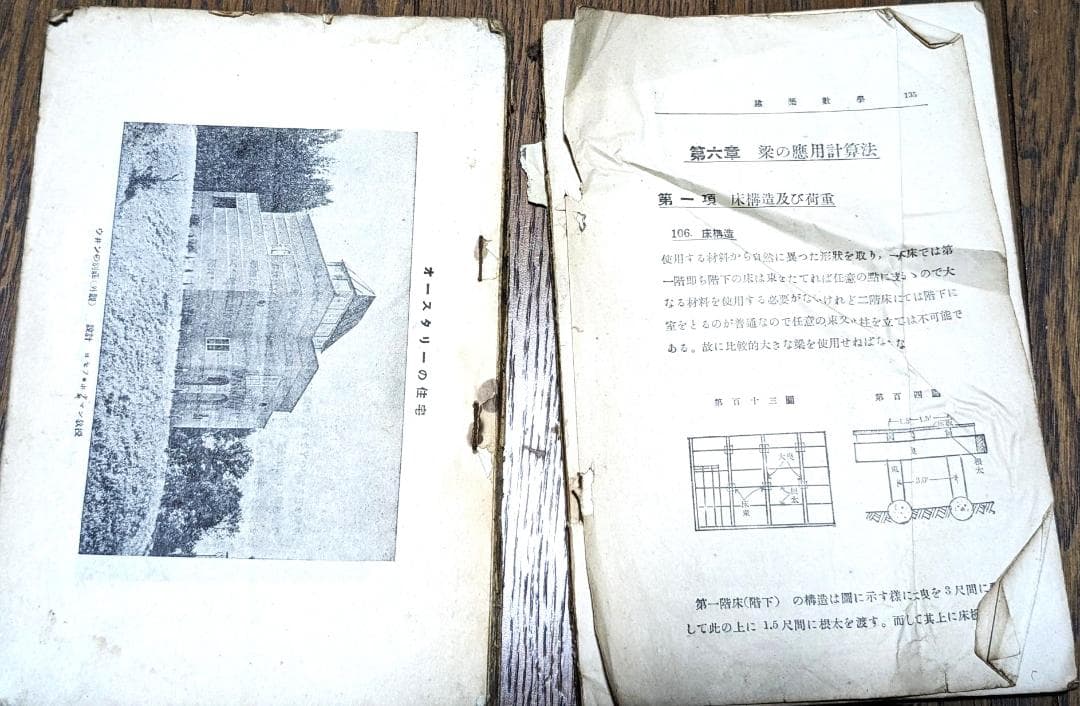 オースタリーの住宅
ウヰンの郊外 設計 ヨセフ・ホフマン教授
建築數學 135
第六章 梁の應用計算法
第一項 床構造及び荷重
106. 床構造
使用する材料から自然に異つた形狀を取り, 木床では第
一階即ち階下の床は束をたてれば任意の點に ので大
なる材料を使用する必要がないけれど二階床にては階下に
室をとるのが普通なので任意の束又は柱を立ては不可能で
ある。故に比較的大きな梁を使用せねばな
第百十三圖
第百四圖
大曳
根太
床束
1.5' 1.5'
床板
曳
根太
3.0'
第一階床(階下) の構造は圖に示す樣に大曳を3尺間に
して此の上に 1.5尺間に根太を渡す。而して其上に床